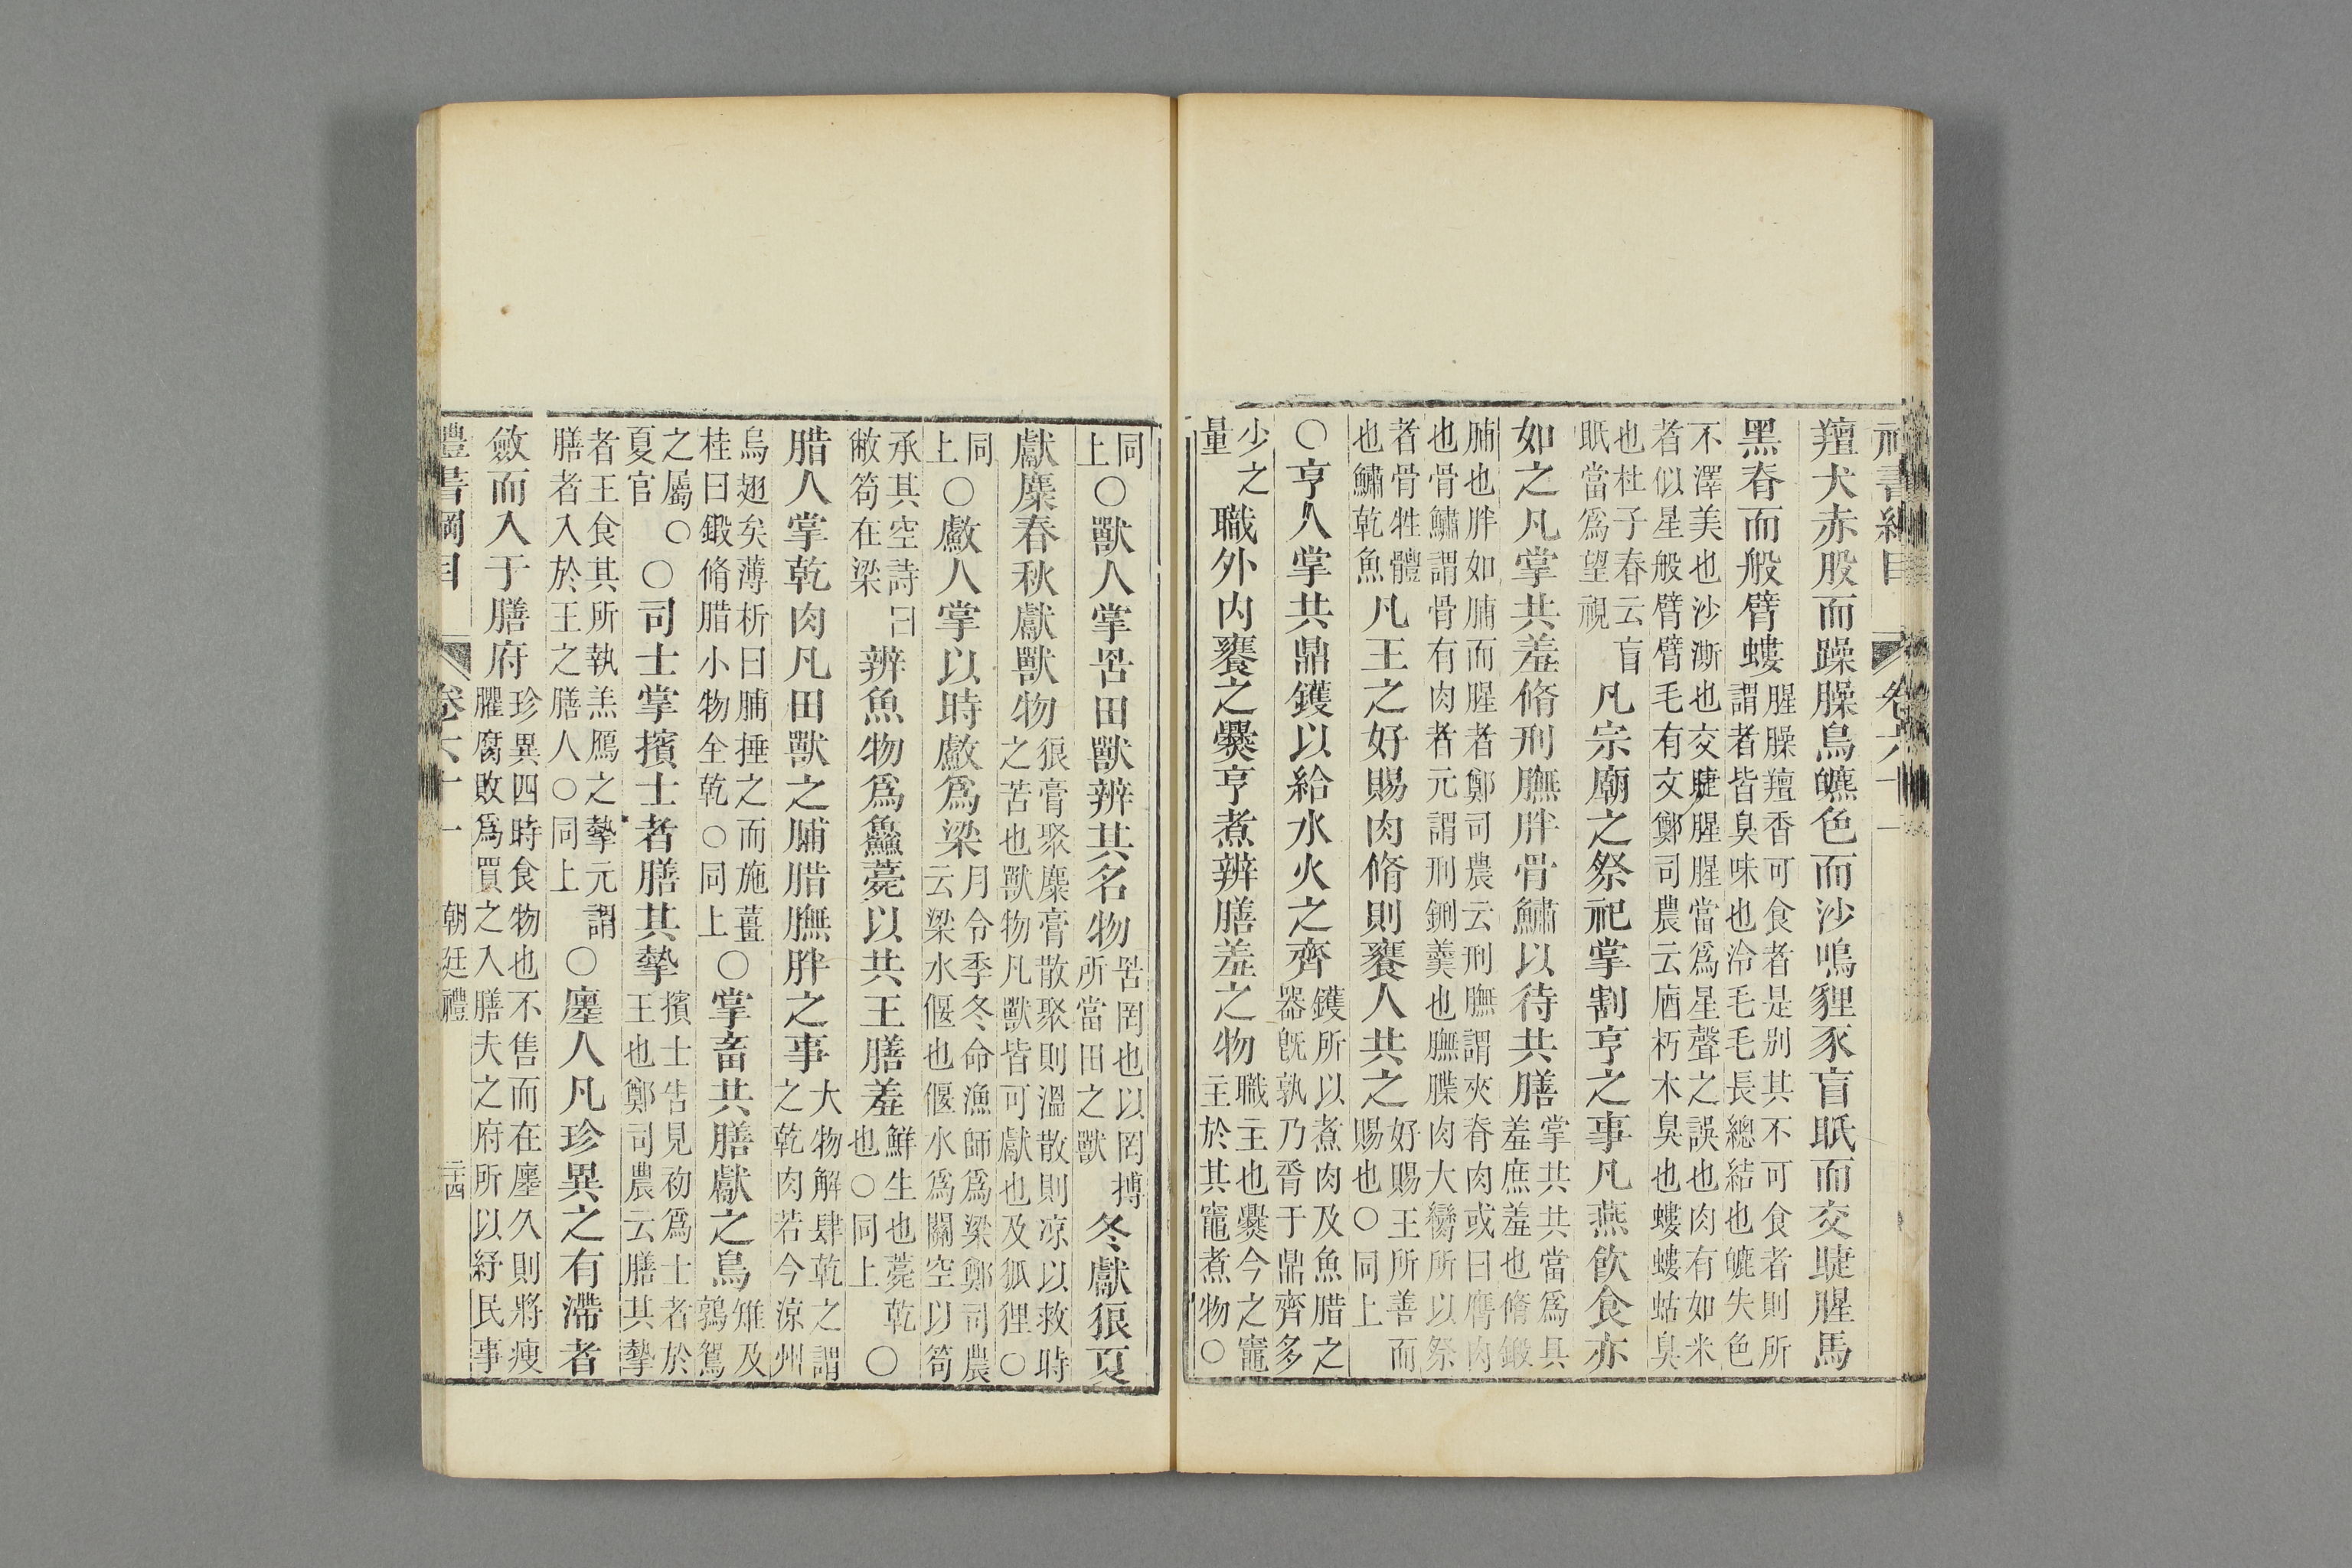 禮書綱目 卷六十一
羶犬赤股而躁臊鳥皫色而沙鳴貍豕盲眡而交睫腥馬
黑脊而般臂螻
腥臊羶香可食者是别其不可食者則所
謂者皆臭味也泠毛毛長總結也皫失色
不澤美也沙澌也交睫腥腥當爲星聲之誤也肉有如米
者似星般臂臂毛有文鄭司農云庮朽木臭也螻螻蛄臭
也杜子春云盲
眡當爲望視
凡宗廟之祭祀掌割亨之事凡燕飲食亦
如之凡掌共羞脩刑膴胖骨鱐以待共膳
掌共共當爲具
羞庶羞也脩鍛
脯也胖如脯而腥者鄭司農云刑膴謂夾脊肉或曰膺肉
也骨鱐謂骨有肉者元謂刑鉶羹也膴䐑肉大臠所以祭
者骨牲體
也鱐乾魚
凡王之好賜肉脩則饔人共之
好賜王所善而
賜也○同上
○亨人掌共鼎鑊以給水火之齊
鑊所以煮肉及魚腊之
器旣孰乃脀于鼎齊多
少之
量
職外内饔之爨亨煮辨膳羞之物
職主也爨今之竈
主於其竈煮物○
同
上
○獸人掌罟田獸辨其名物
罟罔也以罔搏
所當田之獸
冬獻狼夏
獻麋春秋獻獸物
狼膏聚麋膏散聚則溫散則凉以救時
之苦也獸物凡獸皆可獻也及狐狸○
同
上
○䱷人掌以時䱷爲梁
月令季冬命漁師爲梁鄭司農
云梁水偃也偃水爲關空以笱
承其空詩曰
敝笱在梁
辨魚物爲鱻薧以共王膳羞
鮮生也薧乾
也○同上
○
腊人掌乾肉凡田獸之脯腊膴胖之事
大物解肆乾之謂
之乾肉若今涼州
烏翅矣薄析曰脯捶之而施薑
桂曰鍛脩腊小物全乾○同上
○掌畜共膳獻之鳥
雉及
鶉鴽
之屬○
夏官
○司士掌擯士者膳其摯
擯士告見初爲士者於
王也鄭司農云膳其摯
者王食其所執羔鴈之摯元謂
膳者入於王之膳人○同上
○廛人凡珍異之有滯者
斂而入于膳府
珍異四時食物也不售而在廛久則將瘦
臞腐敗爲買之入膳夫之府所以紓民事
禮書綱目 卷六十一 朝廷禮 二十四